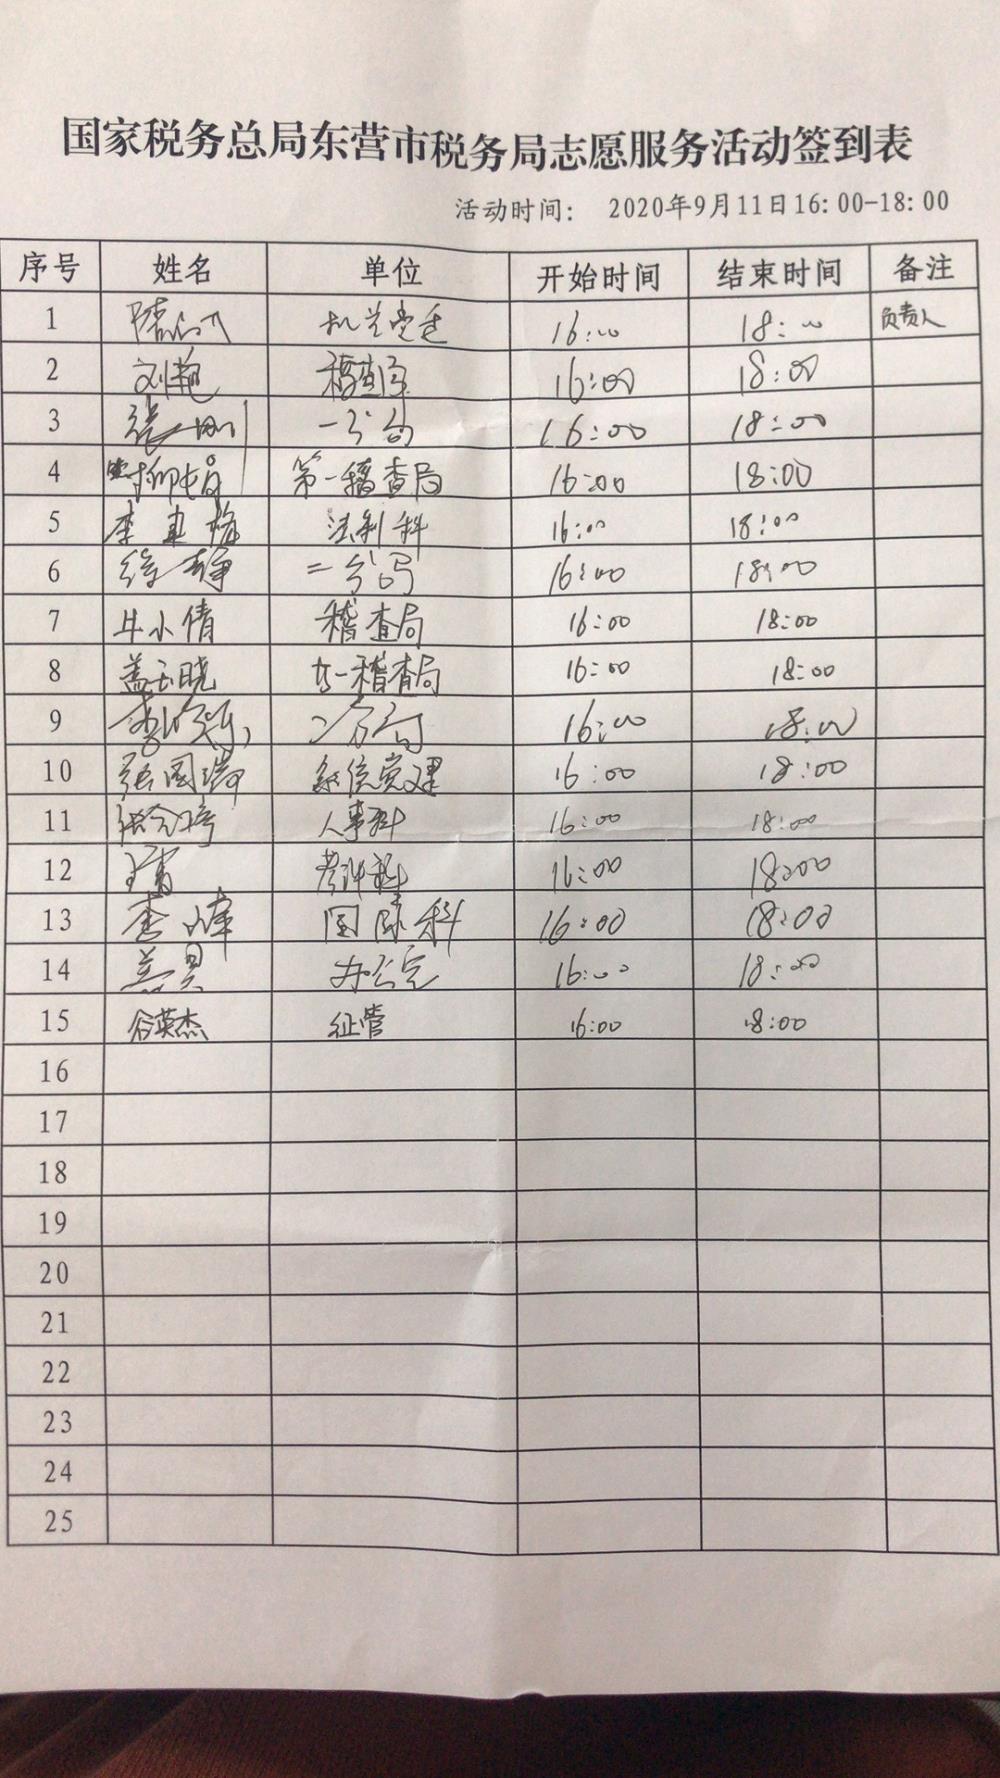 国家税务总局东营市税务局志愿服务活动签到表
活动时间： 2020年9月11日16:00-18:00
序号 姓名 单位 开始时间 结束时间 备注
1 16:00 18:00 负责人
2 刘艳 稽查局 16:00 18:00
3 张刚 一分局 16:00 18:00
4 第一稽查局 16:00 18:00
5 李建梅 法制科 16:00 18:00
6 徐静 二分局 16:00 18:00
7 牛小倩 稽查局 16:00 18:00
8 盖玉晓 稽查局 16:00 18:00
9 二分局 16:00 18:00
10 张国瑞 系统党建 16:00 18:00
11 人事科 16:00 18:00
12 考评科 16:00 18:00
13 李峰 国际科 16:00 18:00
14 办公室 16:00 18:00
15 谷英杰 征管 16:00 18:00
16
17
18
19
20
21
22
23
24
25